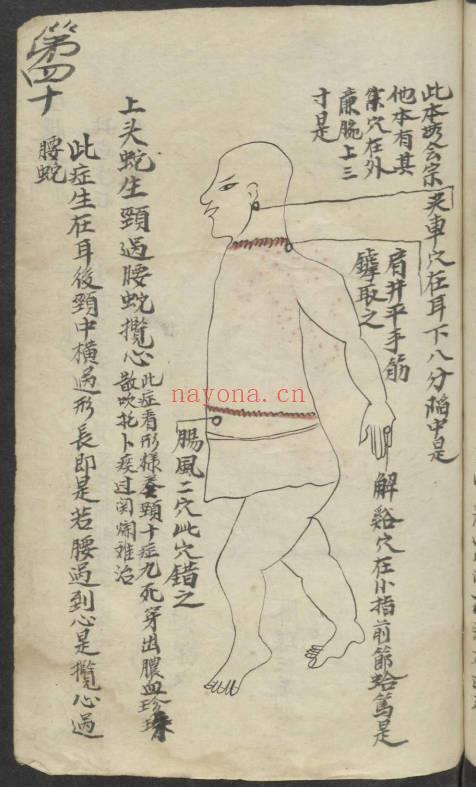 夹車穴在耳下八分陷中是
此本無會宗
他本有其
集穴在外
廉腕上三
寸是
肩井平手筋
罅取之
解谿穴在小指前節蛤篤是
腸風二穴此穴錯之
上头蛇生頸過腰蛇攬心
此症看形樣 頸十症九死穿出膿血珍珠
散吹托卜疾过闵爛难治
此症生在耳後頸中橫過形長即是若腰過到心是攬心過
腰蛇
第四十
nayona.cn